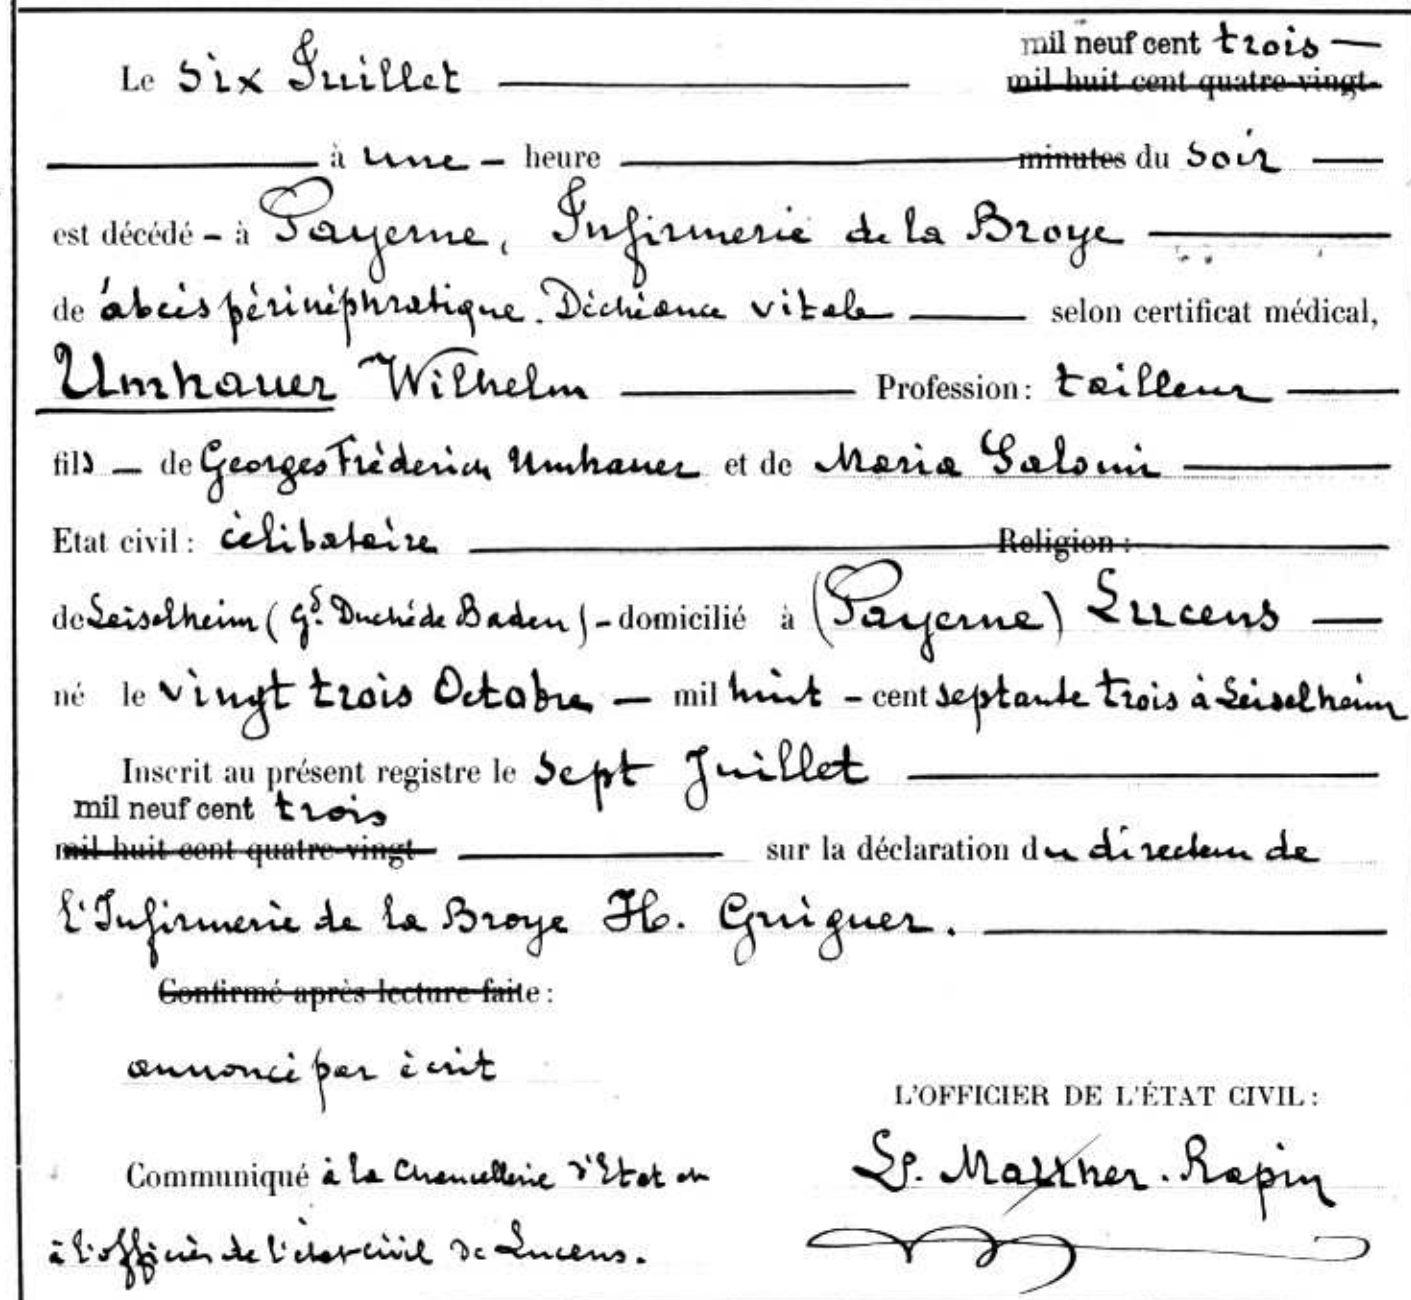 mil neuf cent trois —
Le six Juillet — mil huit cent quatre-vingt-
à une — heure — minutes du soir —
est décédé – à Payerne, Infirmerie de la Broye —
de abcès périnéphratique. Déchéance vitale — selon certificat médical,
Umhauer Wilhelm — Profession : tailleur —
fils — de Georges Fréderich Umhauer et de Maria Salomi —
Etat civil : célibataire — Religion :
de Leiselheim (Gd. Duché de Baden) – domicilié à (Payerne) Lucens —
né le vingt trois Octobre — mil huit – cent septante trois à Leiselheim
Inscrit au présent registre le sept Juillet —
mil neuf cent trois
mil huit cent quatre-vingt — sur la déclaration du directeur de
l'Infirmerie de la Broye H. Guiguer. —
Confirmé après lecture faite :
annoncé par écrit
L'OFFICIER DE L'ÉTAT CIVIL :
Communiqué à la Chancellerie d'Etat et
Rapin
à l'officier de l'état civil de Lucens.